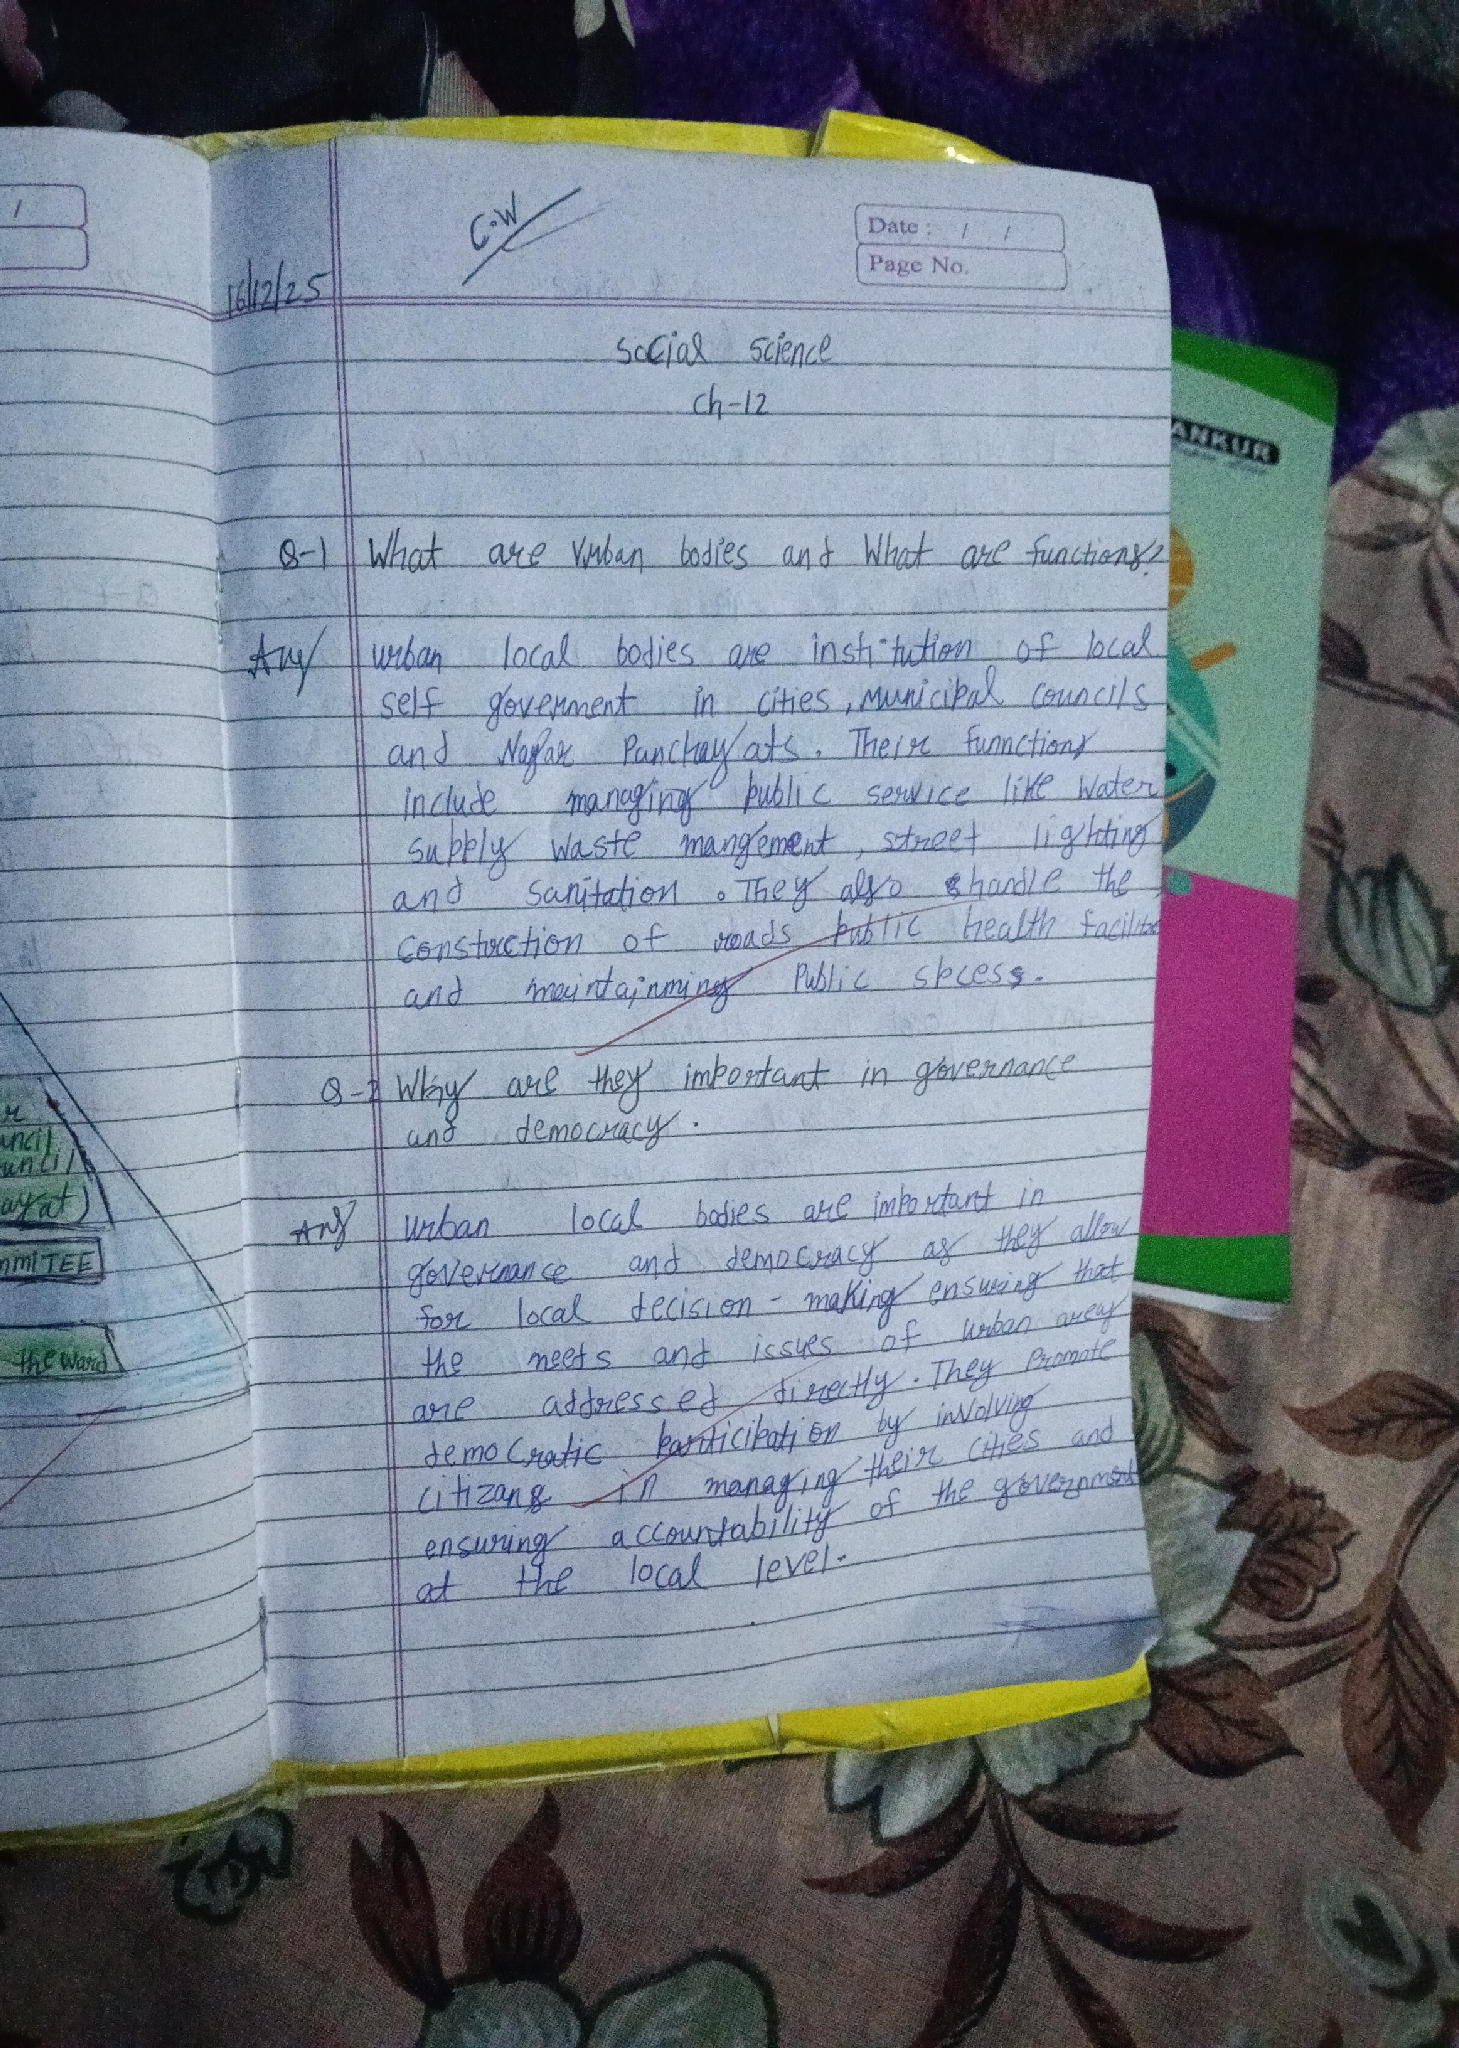 r
uncil
uncil
ayat)
MMITEE
the ward
C.W
Date : / /
Page No.
16/12/25
Social Science
Ch-12
Q-1 What are Urban bodies and What are functions?
Ans urban local bodies are institution of local
self goverment in cities, Municipal Councils
and Nagar Panchayats. Their funnctions
include managing public service like Water
supply waste mangement, street lighting
and sanitation. They also handle the
construction of roads public health facilities
and maintainming Public spcess.
Q-2 Why are they important in governance
and democracy.
Ans urban local bodies are important in
governance and democracy as they allow
for local decision - making ensuring that
the needs and issues of urban areas
are addressed directly. They Promote
democratic participation by involving
citizans in managing their cities and
ensuring accountability of the government
at the local level.
ANKUR